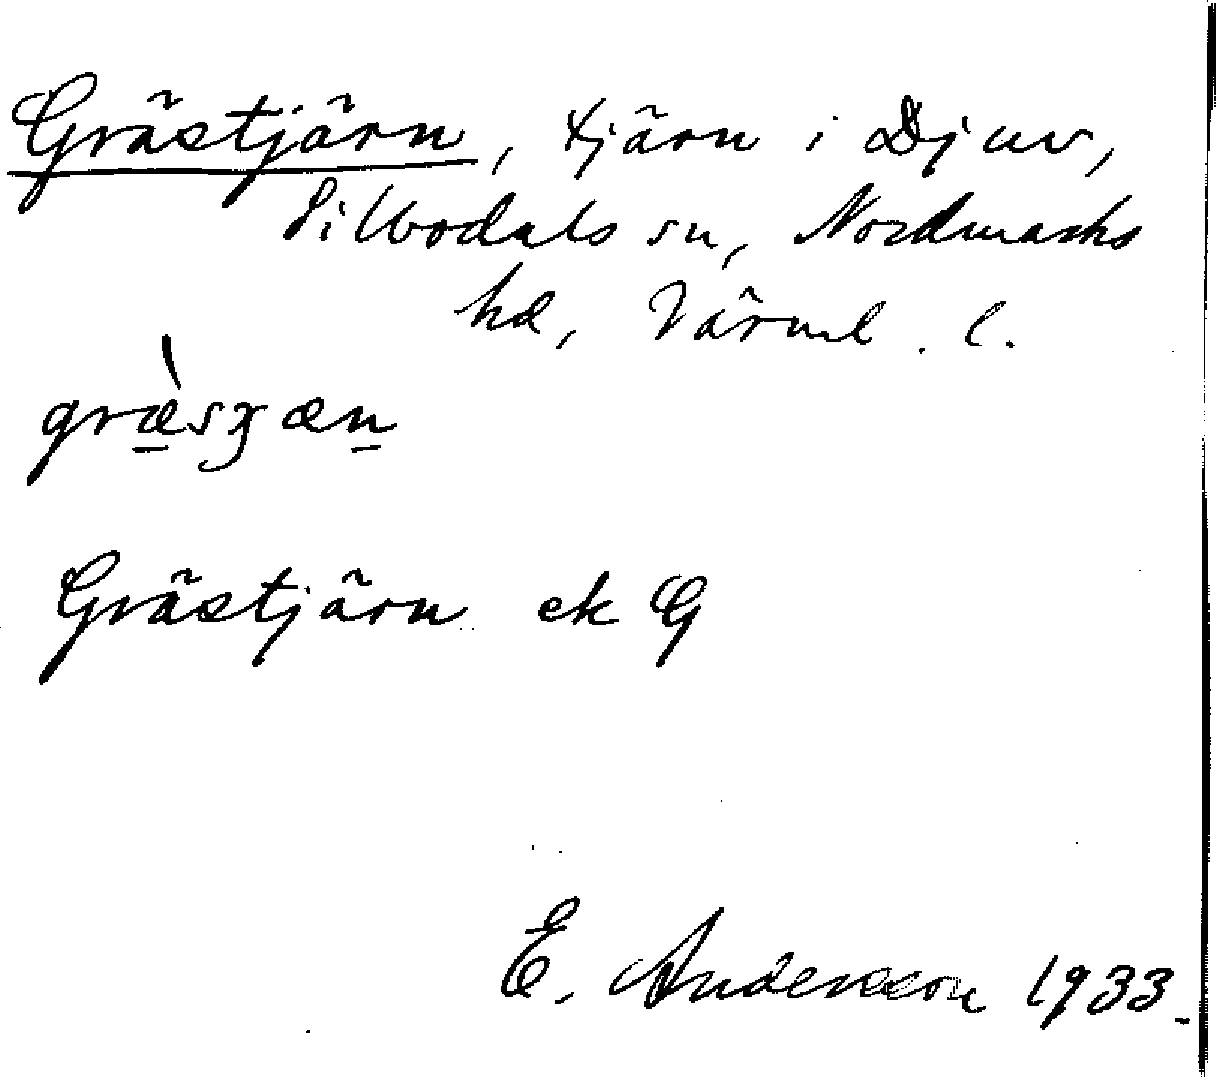 Grästjärn, tjärn i Djuv,
Silbodals sn, Nordmarks
hd, Värml. l.
græ̀sʒæn
Grästjärn ek G
E. Andersson 1933.